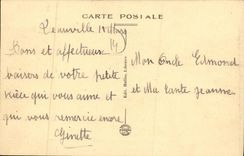 CARTE POSTALE
Bons et affectueux
baisers de votre petite
nièce qui vous aime et
qui vous remercie encore
Ginette
Mon Oncle Edmond
et Ma tante Jeanne